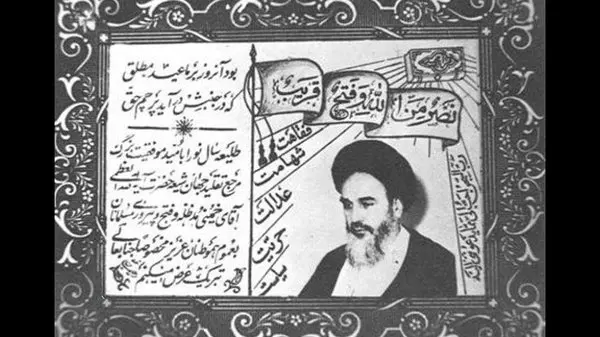 بود آنروز بر ما عید مطلق
که در جنبش در آید پرچم حق
طلیعه سال نو را با امید موفقیت بزرگ
مرجع تقلید جهان شیعه حضرت آیت اله العظمی
آقای خمینی مد ظله و فتح و پیروزی مسلمانان
بعموم هموطنان عزیز مخصوصا جنابعالی
تبریک عرض میکنیم
نصر من الله و فتح قریب
فقاهت
شهامت
عدالت
حریت
سیاست